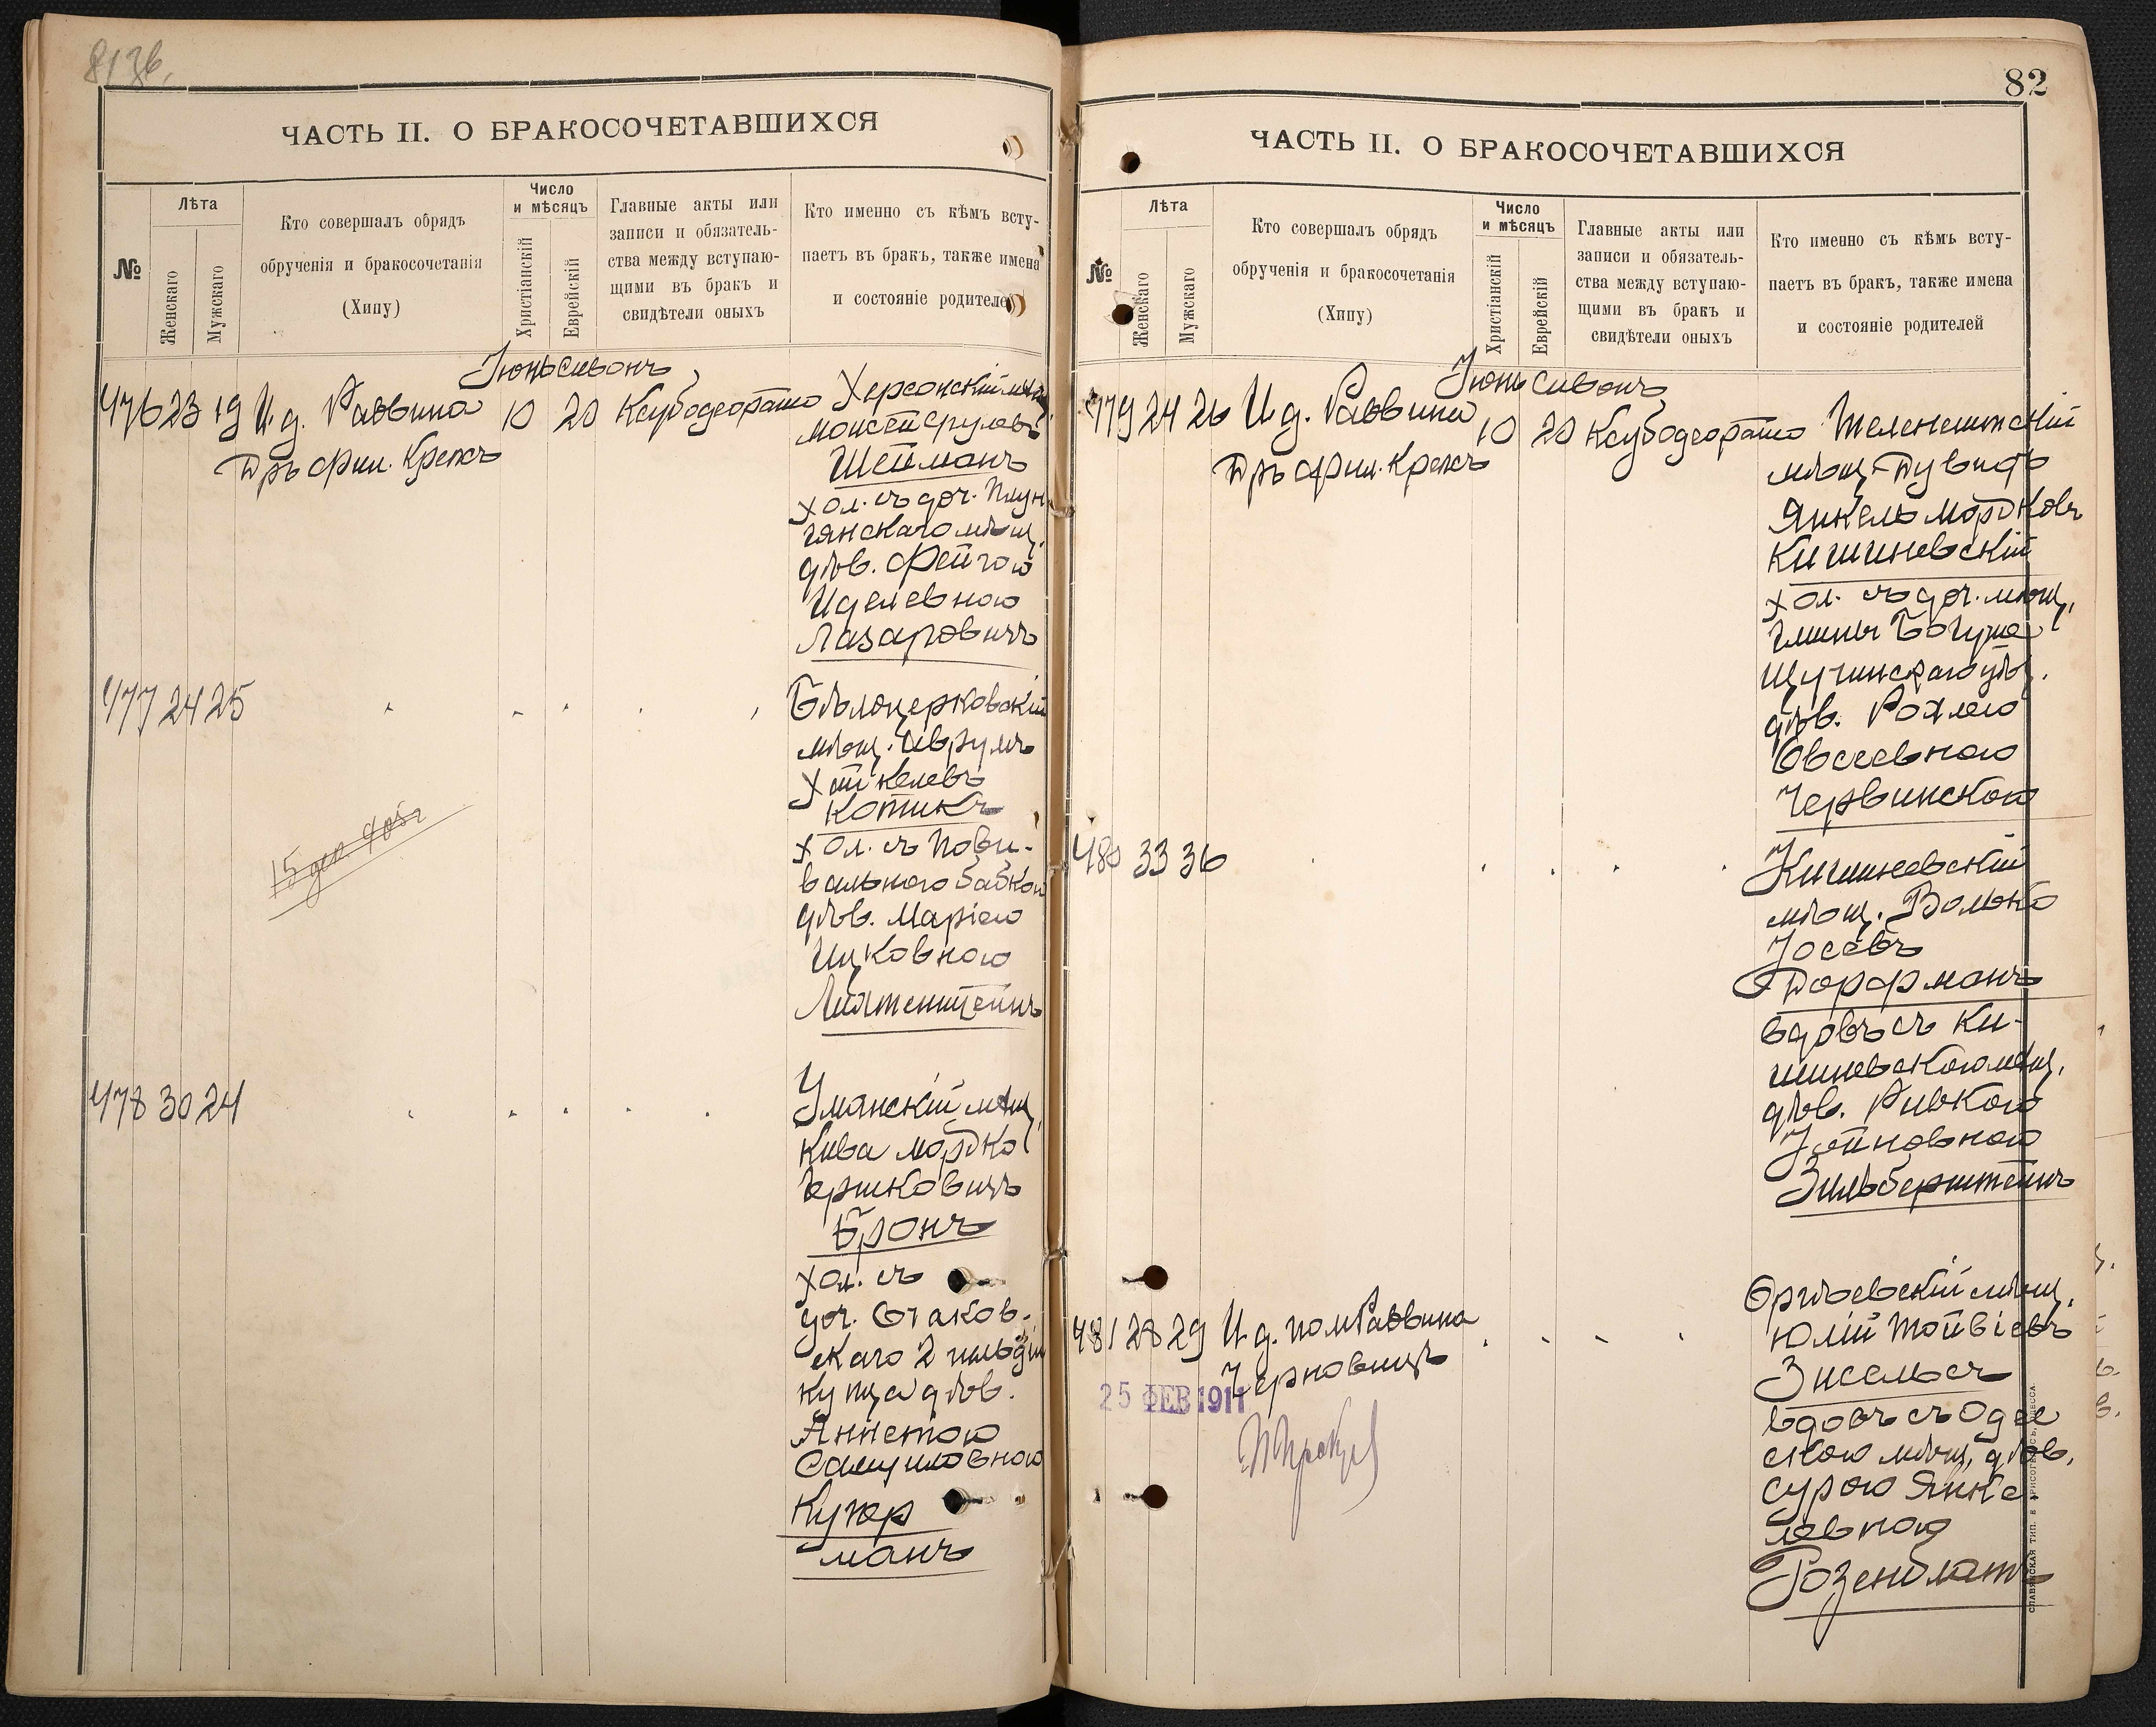 ЧАСТЬ II. О БРАКОСОЧЕТАВШИХСЯ
№
Лѣта
Женскаго
Мужскаго
Кто совершалъ обрядъ
обрученія и бракосочетанія
(Хипу)
Число
и мѣсяцъ
Христіанскій
Еврейскій
Главные акты или
записи и обязатель-
ства между вступаю-
щими въ бракъ и
свидѣтели оныхъ
Кто именно съ кѣмъ всту-
паетъ въ бракъ, также имена
и состояніе родителей
Іюнь Сивонъ
476 23 19 И. д. Раввина 10 20 Ксубодеорато Херсонскій мѣщ.
Дръ фил. Крепсъ
Мойсей Срулевъ
Шейманъ
хол. съ доч. Плун
гянскаго мѣщ.
дѣв. Фейгою
Иделевною
Лазаровичъ
477 24 25 Бѣлоцерковскій
мѣщ. Аврумъ
Хайкелевъ
Котикъ
хол. съ Пови-
вальною бабкою
дѣв. Маріею
Ицковною
Лихтенштейнъ
15 дек. 905 г
478 30 24 Уманскій мѣщ.
Кива Мордко
Гершковичъ
Бронъ
хол. съ
доч. Очаков-
скаго 2 гильдіи
купца дѣв.
Аннетою
Самуиловною
Купер
манъ
82
ЧАСТЬ II. О БРАКОСОЧЕТАВШИХСЯ
№
Лѣта
Женскаго
Мужскаго
Кто совершалъ обрядъ
обрученія и бракосочетанія
(Хипу)
Число
и мѣсяцъ
Христіанскій
Еврейскій
Главные акты или
записи и обязатель-
ства между вступаю-
щими въ бракъ и
свидѣтели оныхъ
Кто именно съ кѣмъ всту-
паетъ въ бракъ, также имена
и состояніе родителей
Іюнь Сивонъ
479 24 26 И. д. Раввина 10 20 Ксубодеорато Теленештскій
Дръ фил. Крепсъ
мѣщ. Дувидъ
Янкель Мордковъ
Кишиневскій
хол. съ доч. мѣщ.
гмины Богуше
Щучинскаго уѣз.
дѣв. Рохлею
Овсеевною
Червинскою
480 33 36 Кишиневскій
мѣщ. Волько
Іосевъ
Дорфманъ
вдовъ съ Ки-
шиневскою мѣщ.
дѣв. Ривкою
Хойновною
Зильберштейнъ
481 28 29 И. д. пом Раввина
Черновицъ
Оргѣевскій мѣщ.
Юлій Тойвіевъ
Зисельсъ
вдовъ съ Одес
скою мѣщ. дѣв.
Сурою Янке
левною
Розенблатъ
25 ФЕВ 1911
СЛАВЯНСКАЯ ТИП. Е ХРИСОГЕЛОСЪ, ОДЕССА